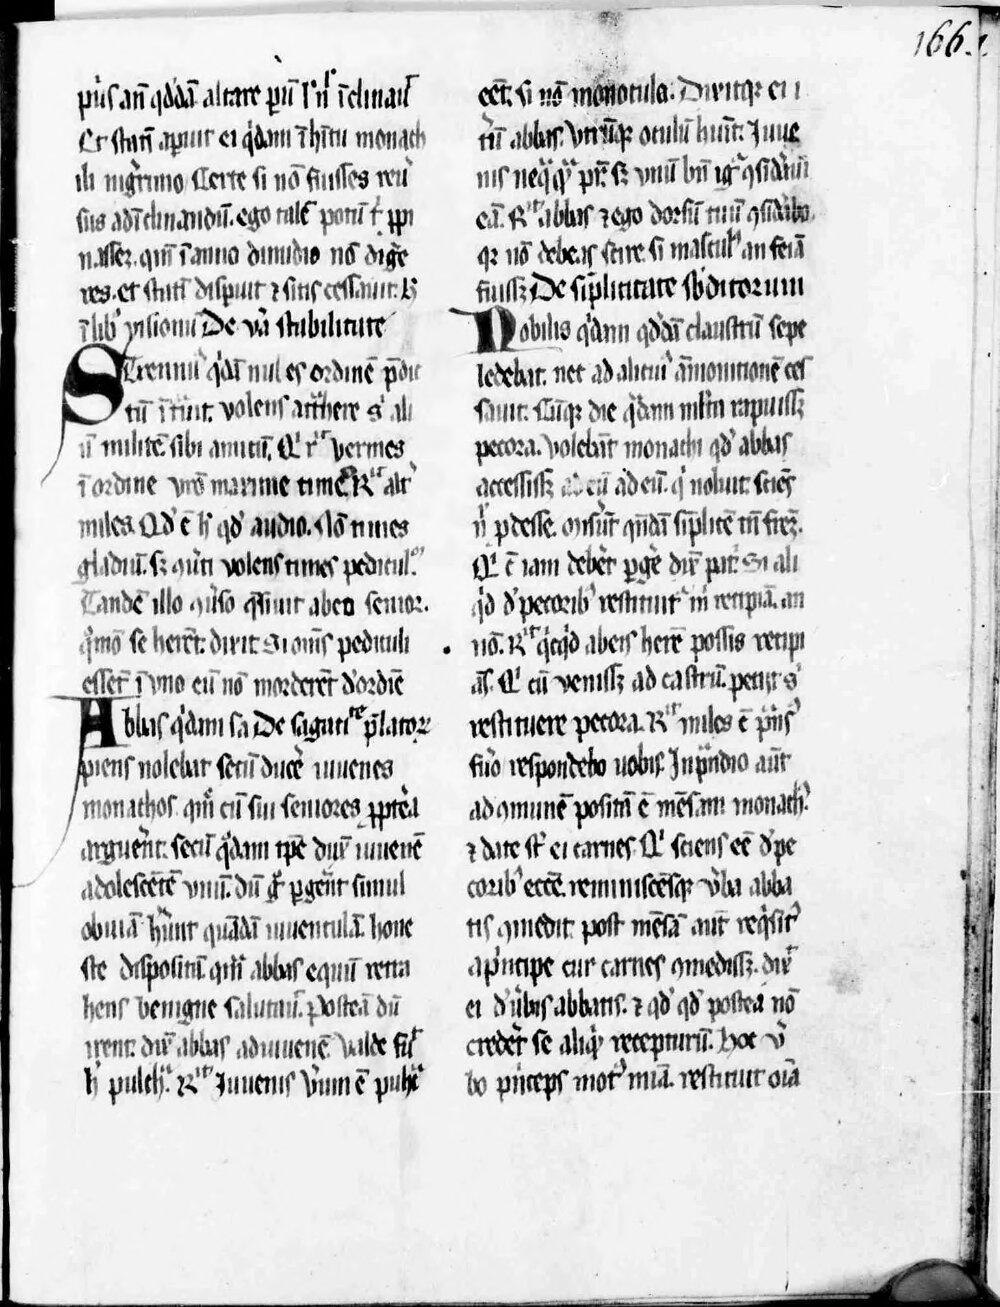 166.
pius añ qđdā altare
Et statī aꝑuit ei qͥdam ī hitu monach
ili nigͬrimo Certe si nō fuisses reuͬ
sus ad īclinandum. ego talē potū t ꝓpi
nassez. qm̄ ī anno dimidio nō dige
res. et statī disputit ⁊ sitis cessauit.
ī lib̾ visionū De vͣa stabilitate
Strennuͬ qͥdā miles ordinē p̄dic
tū ītuit. volens att̾here s̾ ali
ū militē sibi amicū. vermes
ī ordine vr̄o maxime timeo Rͭ alt̾
miles. Qđ ē h̾ qđ audio. Nō times
gladiū. sꝫ volens times pedicul
Tandē illo ꝯu̾so q̄siuit ab eo senior.
qͦmō se herēt. dixit Si om̄s pediculi
essēt ī vno eū nō morderēt đ ordīe
Abbas qͥdam sa De sagaci p̄lator
piens nolebat secū ducē iuuenes
monachos. qm̄ cū sui seniores ꝓpt̾ea
arguēnt. secū qͦdam tp̄e dux̾ iuuenē
adolescētē vnū. dū gͦ ꝑgēnt simul
obuiā hu̾nt quādā iuuenculā hone
ste dispositā abbas equū retra
hens benigne salutauͭ. Posteā dū
irent. dix̾ abbas ad iuuenē. Valde fuͭ
h̾ pulchͣ. Rͭ Iuuenis Vum ē pulchͣ
eēt. si nō monocula. Dixitqꝫ ei i
tū abbas. Vtrūqꝫ oculū huīt. Iuue
nis neqͣqͣ pr̄. sꝫ vnū bn̄ igͬ ꝯsid̾aui
eā. Rͭ abbas ⁊ ego dorsū tuū ꝯsid̾abo.
qꝫ nō debeas scire. si mascul̾ an feīa
fuissꝫ De sīplicitate sb̾ditorum
Nobilis qͥdam qđdā claustrū sepe
ledebat. nec ad alicui̾ āmonitionē ces
sauit. Cūqꝫ die qͦdam ml̾ta rapuissꝫ
pecora. volebāt monachi qđ abbas
accessissꝫ ad eū. qͥ noluit. sciēs
n̄ ꝓdesse. qn̄dā sīplicē frēz.
Qͥ ē iam debēt ꝑgē dix̾ pat̾. Si ali
qͥd đ pecorib̾ restituit̾ m̄ recipiā. an
nō. Rͭ qͥcqͥd ab eis herē possis recipi
as. Qͥ cū venissꝫ ad castrū. petiit s̾
restituere pecora. Rͭ miles ē pͥus
fr̄o respondebo uobis. In pͣndio aut
ad ꝯmunē positā ē mēsam monach̾
⁊ date sͭ ei carnes. Qͥ sciens eē đ pe
corib̾ eccē. reminiscēsqꝫ v̾ba abba
tis ꝯmedit. post mēsā aut reqͥsit̾
a pͥncipe cur carnes ꝯmedissꝫ. dix̾
ei đ v̾bis abbatis. ⁊ qđ qđ postea nō
credēt se aliqͥd recepturū. Hoc v̾
bo pͥnceps mot̾ mīa. restituit oīa